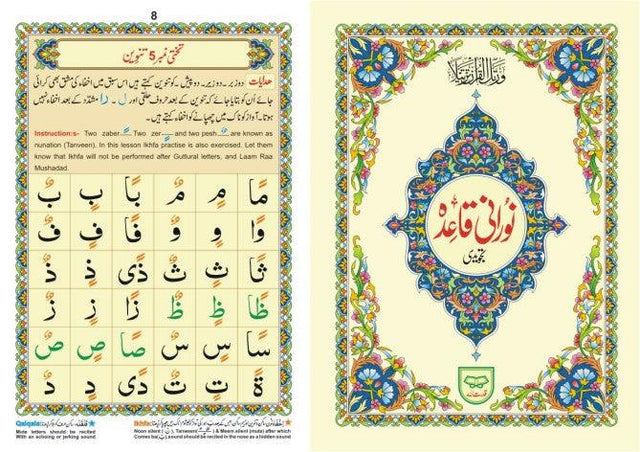 8
تختی نمبر 5 تنوین
ھدایات دو زبر۔ دو زیر۔ دو پیش ۔ کو تنوین کہتے ہیں اس سبق میں اخفاء کی مشق بھی کرائی
جائے اُن کو بتایا جائے کہ تنوین کے بعد حروف حلقی اور ل ۔ را مشدّد کے بعد اخفاء نہیں
ہوتا۔ آواز کو ناک میں چھپانے کو اخفاء کہتے ہیں۔
Instruction:s- Two zaber Two zer and two pesh are known as
nunation (Tanveen). In this lesson Ikhfa practise is also exercised. Let them
know that Ikhfa will not be performed after Guttural letters, and Laam Raa
Mushadad.
مًا مٍ مٌ بًا بٍ بٌ
وًا وٍ وٌ فًا فٍ فٌ
ثًا ثٍ ثٌ ذًى ذٍ ذٌ
ظًا ظٍ ظٌ زًا زٍ زٌ
سًا سٍ سٌ صًا صٍ صٌ
ةً تٍ تٌ دًى دٍ دٌ
Ikhfa:
Noon silent (ن), Tanween & Meem silent (mute) after which
Comes ba(ب) sound should be recited in the nose as a hidden sound
Qalqala:
Mute letters should be recited
With an echoing or jerking sound
ورتل القرآن ترتیلا
نورانی قاعدہ
تجویدی